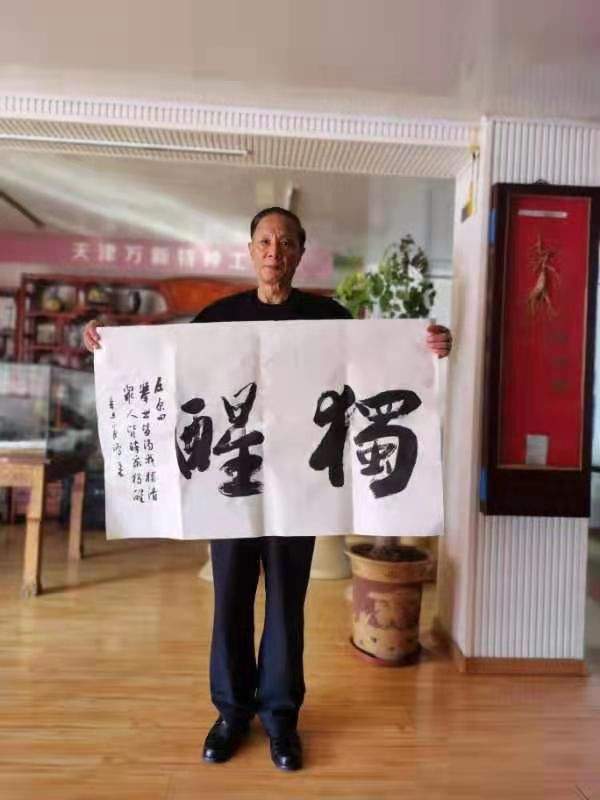 天津万新特种工
獨醒
屈原曰
舉世皆濁我獨清
衆人皆醉我獨醒